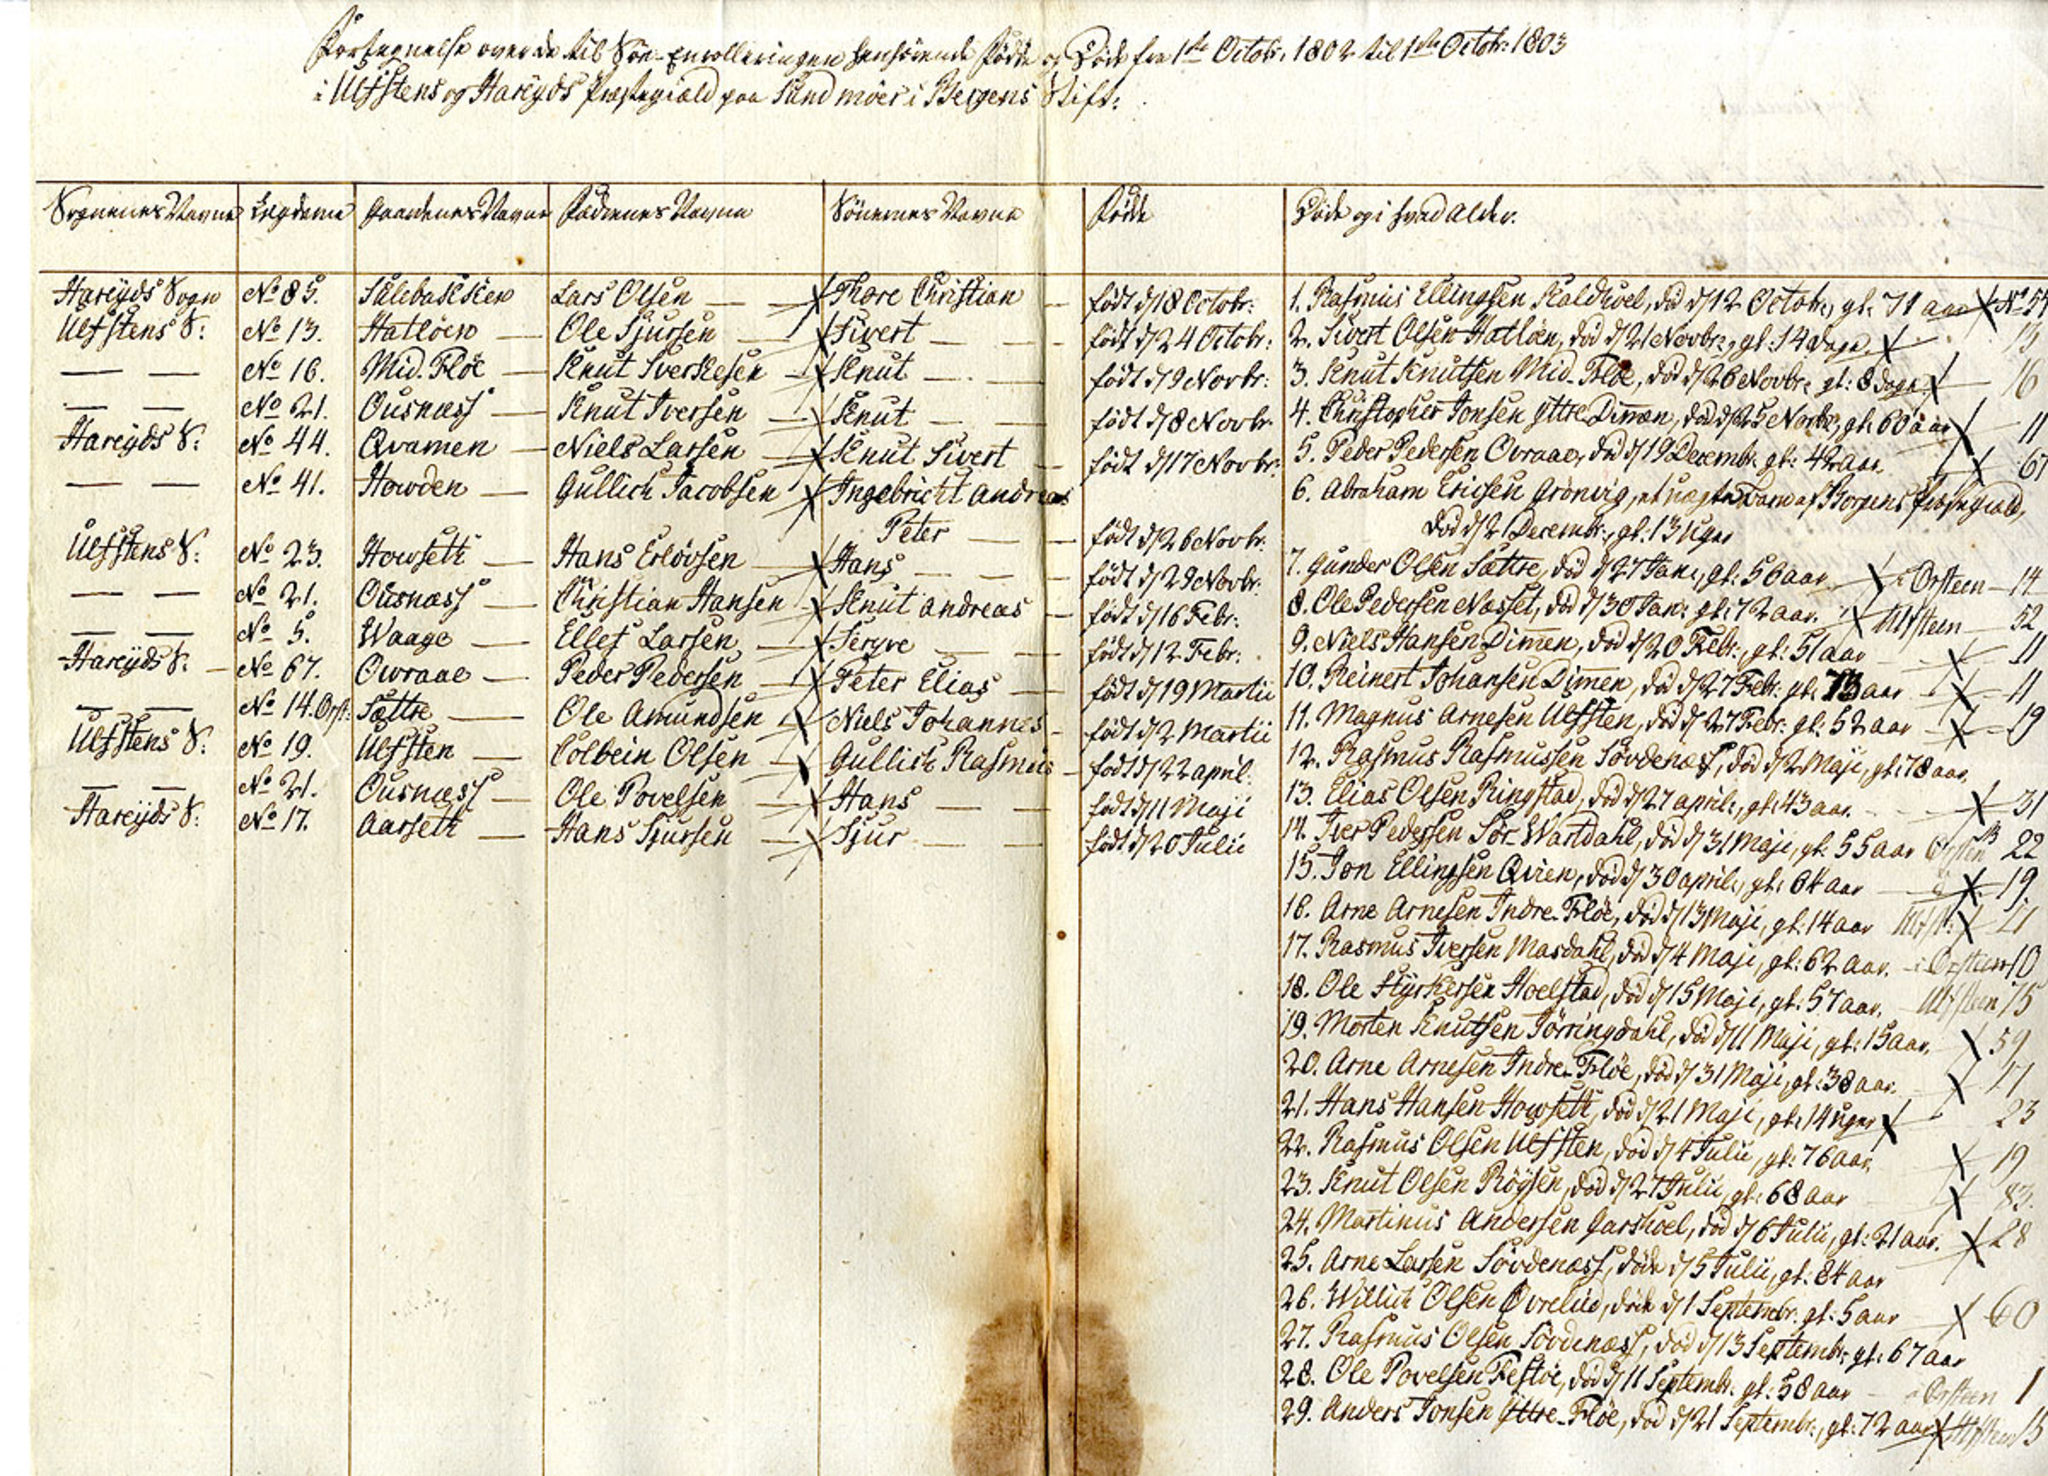 Fortegnelse over de til Söe-Enrolleringen henhörende Födte og Döde fra 1ste Octobr: 1802 til 1ste Octobr: 1803
i Ulfstens og Hareyds Præstegiæld paa Sundmöer i Bergens Stift:
Sognenes Navne Legderne Gaardenes Navne Fædrenes Navne Sönernes Navne Födte Döde og i hvad Alder.
Hareyds Sogn No 85. Lars Olsen Tore Christian födt d 18 Octobr:
Ulfstens S: No 13. Hatlöen Ole Sjursen Sivert födt d 24 Octobr:
— — No 16. Mid-Flöe Knut Sverkesen Knut födt d 9 Novbr:
— — No 21. Ousnæss Knut Iversen Knut födt d 8 Novbr:
Hareyds S: No 44. Qvamen Niels Larsen Knut Sivert födt d 17 Novbr:
— — No 41. Howden Gullich Jacobsen Ingebricht Andreas
Peter födt d 26 Novbr:
Ulfstens S: No 23. Howseth Hans Erlövsen Hans födt d 29 Novbr:
— — No 21. Ousnæss Christian Hansen Knut Andreas födt d 16 Febr:
— — No 5. Waage Ellef Larsen födt d 12 Febr:
Hareyds S: No 67. Owraae Peder Pedersen Peter Elias födt d 19 Martii
— — No 14. Ørst: Sættre Ole Amundsen Niels Johannes födt d 2 Martii
Ulfstens S: No 19. Ulfsten Colbein Olsen Gullich Rasmus födt d 22 April:
— — No 21. Ousnæss Ole Povelsen Hans födt d 11 Maji
Hareyds S: No 17. Aarseth Hans Sjursen Sjur födt d 20 Julii
1. Rasmus Ellingsen Kaldhoel, död d 12 Octobr:, gl: 71 aar No 54
2. Sivert Olsen Hatlöen, död d 21 Novbr:, gl: 14 dage 13
3. Knut Knutsen Mid-Flöe, död d 26 Novbr: gl: 8 dage 16
4. Christopher Jonsen Yttre Dimen, död d 25 Novbr, gl: 60 aar 11
5. Peder Pedersen Ovraae, död d 19 Decembr: gl: 42 aar. 67
6. Abraham Ericsen Grönvig, et uægte Barn af Borgens Præstegiæld,
död d 21 Decembr:, gl: 13 uger
7. Gunder Olsen Sættre, död d 27 Jan:, gl: 56 aar i Örsteen 14
8. Ole Pedersen Næsset, död d 30 Jan: gl: 72 aar. Ulfsteen 52
9. Niels Hansen Dimen, död d 20 Febr:, gl: 51 aar 11
10. Reinert Johansen Dimen, död d 27 Febr: gl: 73 aar 11
11. Magnus Arnesen Ulfsten, död d 27 Febr: gl: 52 aar 19
12. Rasmus Rasmussen Sövdenæs, död d 2 Maji, gl: 78 aar.
13. Elias Olsen Ringstad, död d 27 april:, gl: 43 aar. 31
14. Iver Pedersen Sör-Wartdahl, död d 31 Maji, gl: 55 aar Örsten 22
15. Jon Ellingsen Qvien, död d 30 april:, gl: 64 aar 19
16. Arne Arnesen Indre-Flöe, död d 13 Maji, gl: 14 aar Ulfst:
17. Rasmus Iversen Masdahl, död d 4 Maji, gl: 62 aar. i Örsteen 10
18. Ole Styrkersen Hoelstad, död d 15 Maji, gl: 57 aar. Ulfsteen 75
19. Morten Knutsen Törringdahl, död d 11 Maji, gl: 15 aar. 59
20. Arne Arnesen Indre-Flöe, död d 31 Maji, gl: 38 aar.
21. Hans Hansen Howseth, död d 21 Maji, gl: 14 uger 23
22. Rasmus Olsen Ulfsten, död d 4 Julii, gl: 76 aar. 19
23. Knut Olsen Röysen, död d 27 Julii, gl: 68 aar 83.
24. Martinus Andersen Garshoel, död d 6 Julii, gl: 21 aar. 28
25. Arne Larsen Sövdenæss, döde d 5 Julii, gl: 84 aar
26. Willich Olsen Overlie, döde d 1 Septembr: gl: 5 aar 60
27. Rasmus Olsen Sövdenæss, död d 13 Septembr: gl: 67 aar
28. Ole Povelsen Festöe, död d 11 Septembr: gl: 58 aar Örsteen 1
29. Anders Jonsen Yttre-Flöe, död d 21 Septembr:, gl: 72 aar Ulfsteen 15